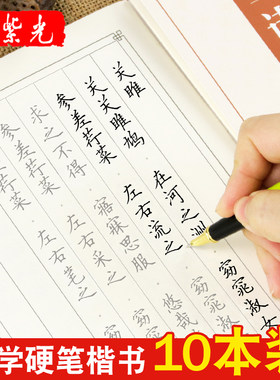 紫光
关雎
关关雎鸠 在河之洲 窈窕淑女
参差荇菜 左右流之 窈窕淑
求之不得 寤寐思服 悠哉
参差荇菜 左右采之 窈
参差荇菜 左右芼之
学硬笔楷书 10本